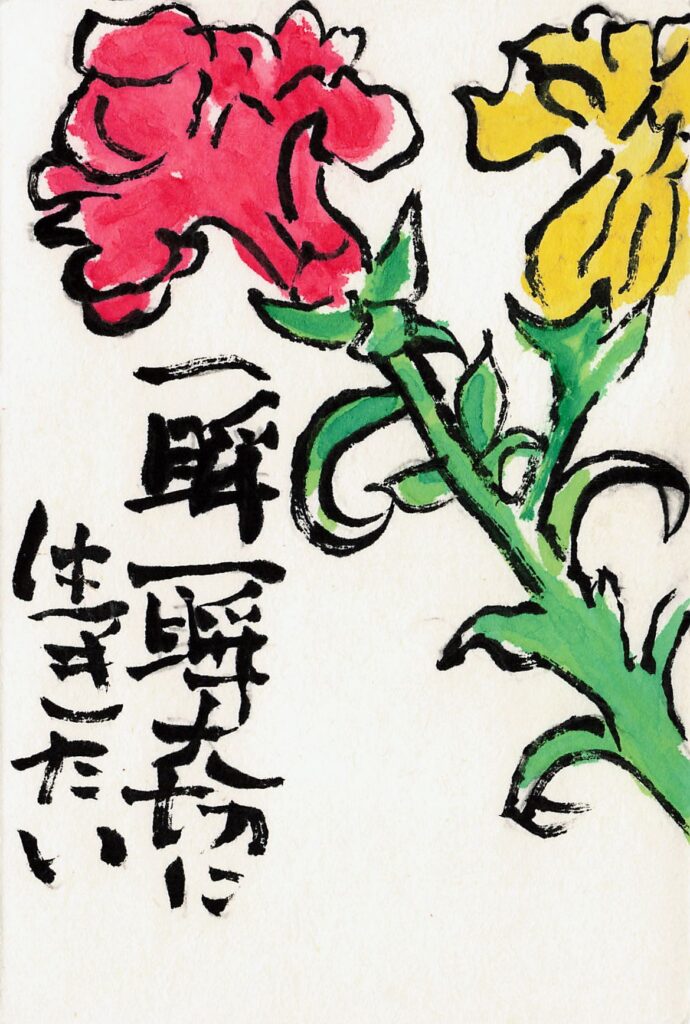 一瞬一瞬大切に
生きたい